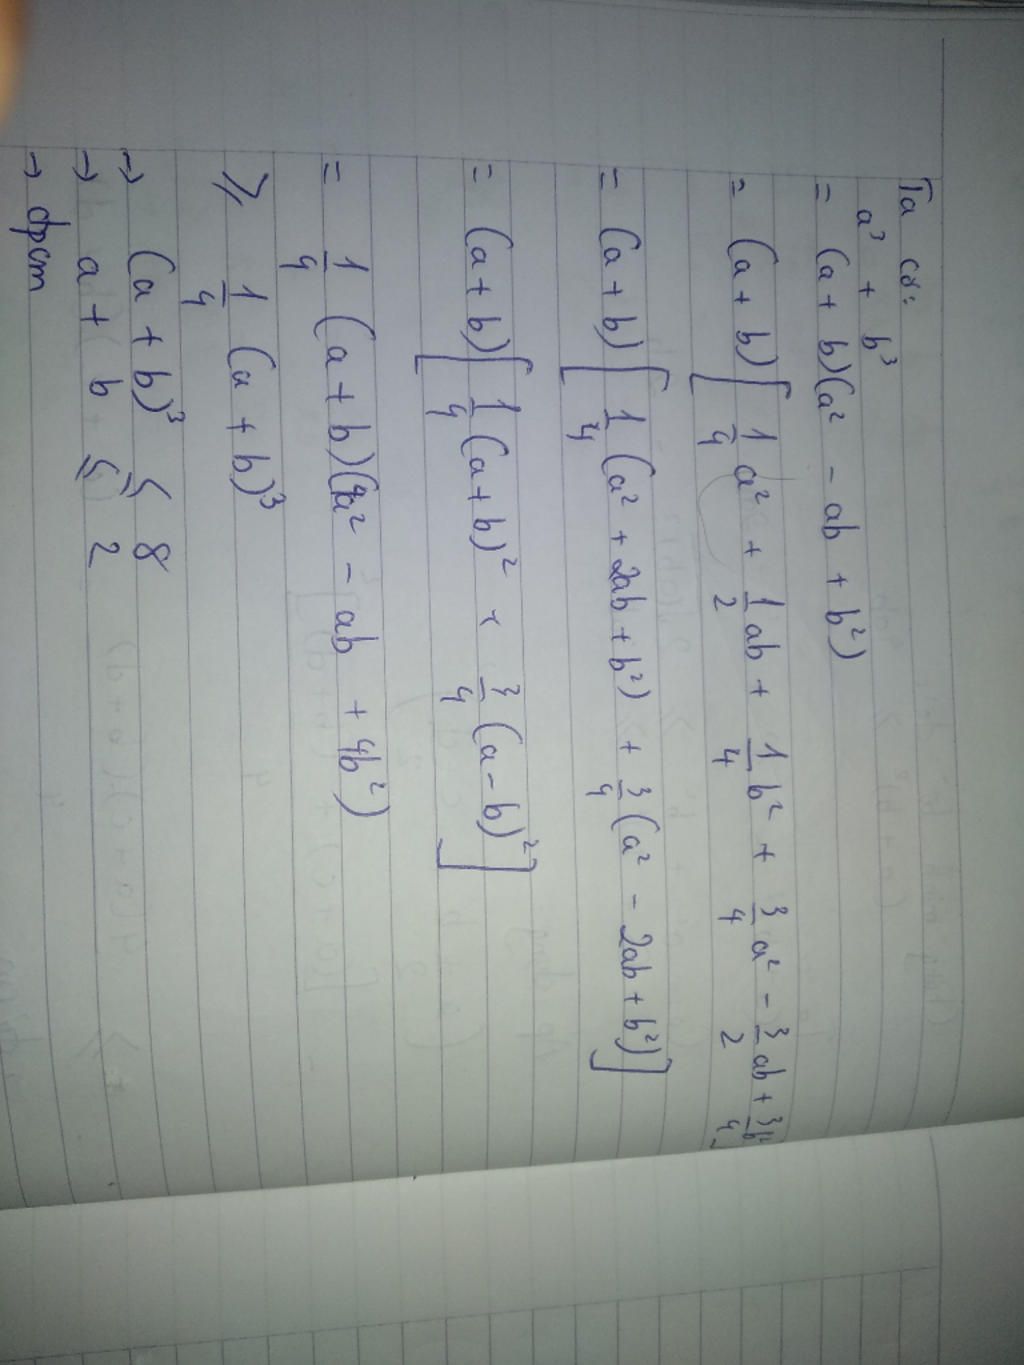 Ta có:
a³ + b³
= (a + b)(a² - ab + b²)
= (a + b)[1/4 a² + 1/2 ab + 1/4 b² + 3/4 a² - 3/2 ab + 3/4 b²
= (a + b)[1/4 (a² + 2ab + b²) + 3/4 (a² - 2ab + b²)]
= (a + b)[1/4 (a + b)² + 3/4 (a - b)²]
= 1/4 (a + b)(4a² - ab + 4b²)
≥ 1/4 (a + b)³
→ (a + b)³ ≤ 8
→ a + b ≤ 2
→ đpcm